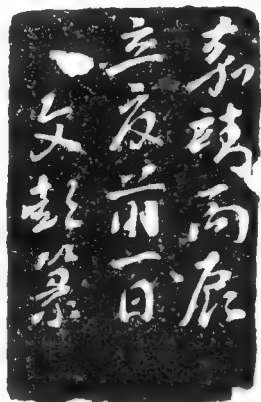 嘉靖丙辰
立夏前一日
文彭篆